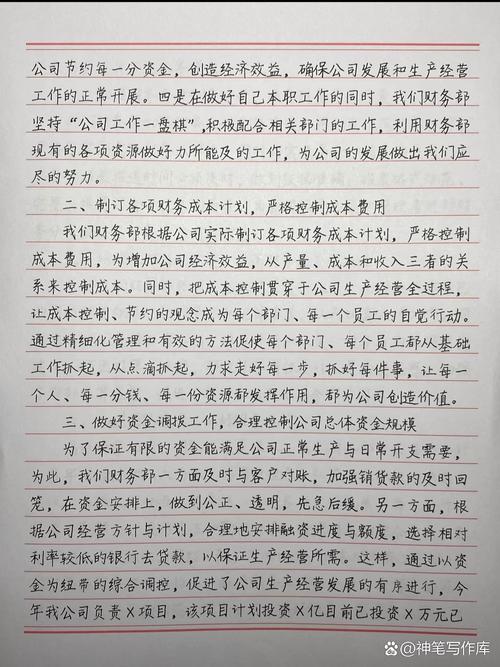 公司节约每一分资金，创造经济效益，确保公司发展和生产经营
工作的正常开展。四是在做好自己本职工作的同时，我们财务部
坚持“公司工作一盘棋”，积极配合相关部门的工作，利用财务部
现有的各项资源做好力所能及的工作，为公司的发展做出我们应
尽的努力。
二、制订各项财务成本计划，严格控制成本费用
我们财务部根据公司实际制订各项财务成本计划，严格控制
成本费用，为增加公司经济效益，从产量、成本和收入三者的关
系来控制成本。同时，把成本控制贯穿于公司生产经营全过程，
让成本控制、节约的观念成为每个部门、每一个员工的自觉行动。
通过精细化管理和有效的方法促使每个部门、每个员工都从基础
工作抓起，从点滴抓起，力求走好每一步，抓好每件事，让每一
个人、每一分钱、每一份资源都发挥作用，都为公司创造价值。
三、做好资金调拨工作，合理控制公司总体资金规模
为了保证有限的资金能满足公司正常生产与日常开支需要，
为此，我们财务部一方面及时与客户对账，加强销货款的及时回
笼，在资金安排上，做到公正、透明，先急后缓。另一方面，根
据公司经营方针与计划，合理地安排融资进度与额度，选择相对
利率较低的银行去贷款，以保证生产经营所需。这样，通过以资
金为纽带的综合调控，促进了公司生产经营发展的有序进行，今
年我公司负责X项目，该项目计划投资X亿目前已投资X万元已
神笔写作库